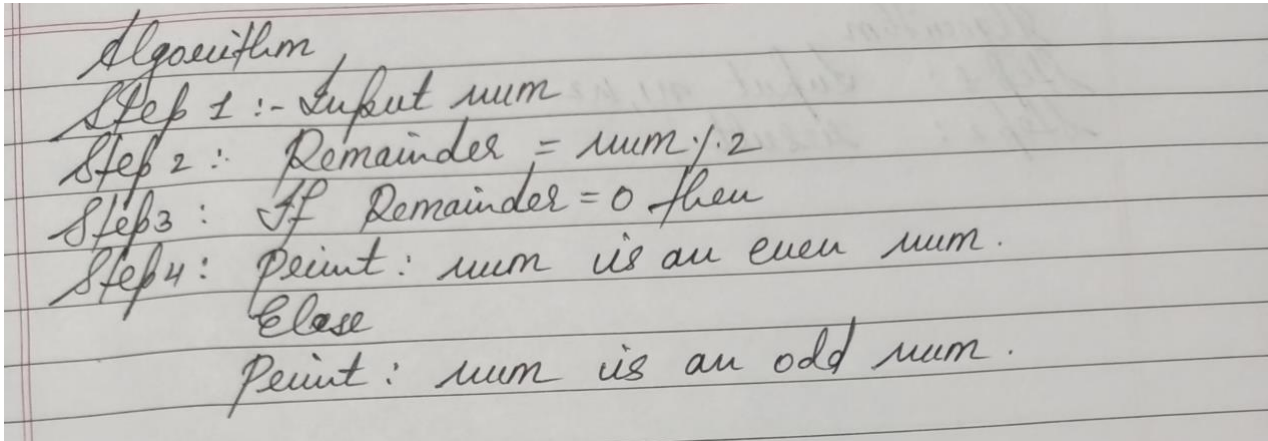 Algorithm
Step 1 :- Input num
Step 2 : Remainder = num % 2
Step 3 : If Remainder = 0 then
Step 4 : Print : num is an even num.
Else
Print : num is an odd num.